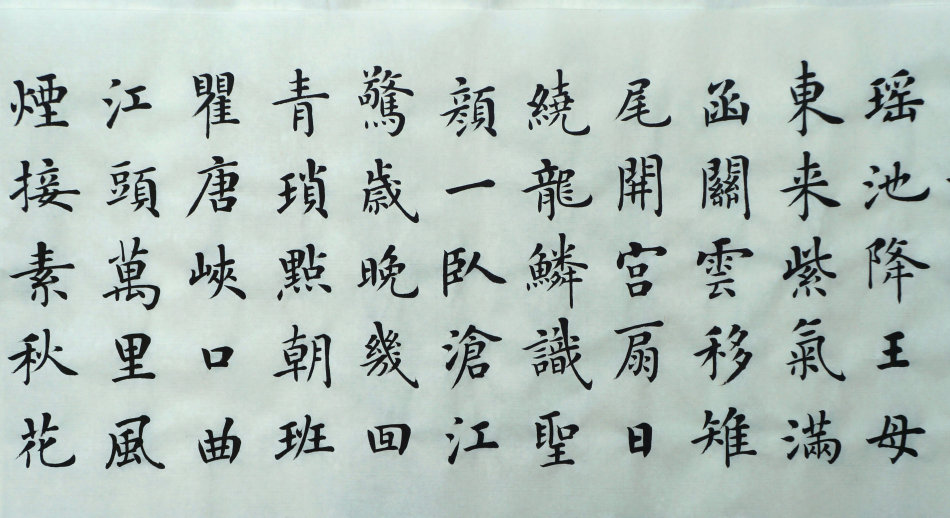 瑶池降王母
東来紫氣滿
函關雲移雉
尾開宫扇日
繞龍鱗識聖
顔一臥滄江
驚歲晚幾回
青瑣點朝班
瞿唐峽口曲
江頭萬里風
煙接素秋花